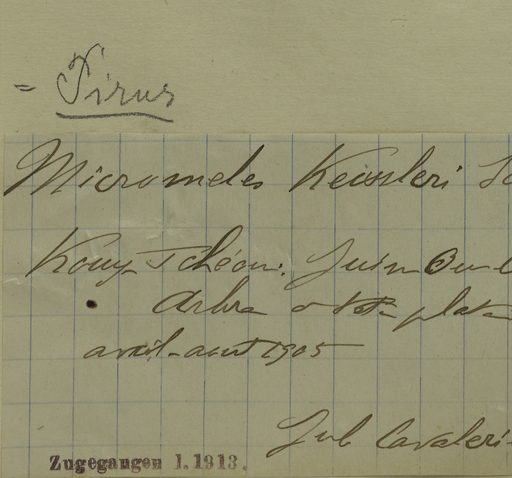 = Pirus
Micromeles Keissleri
Kouy-Tchéou.
Arbre
avril-aout 1905
Jul Cavaleri
Zugegangen 1.1913.